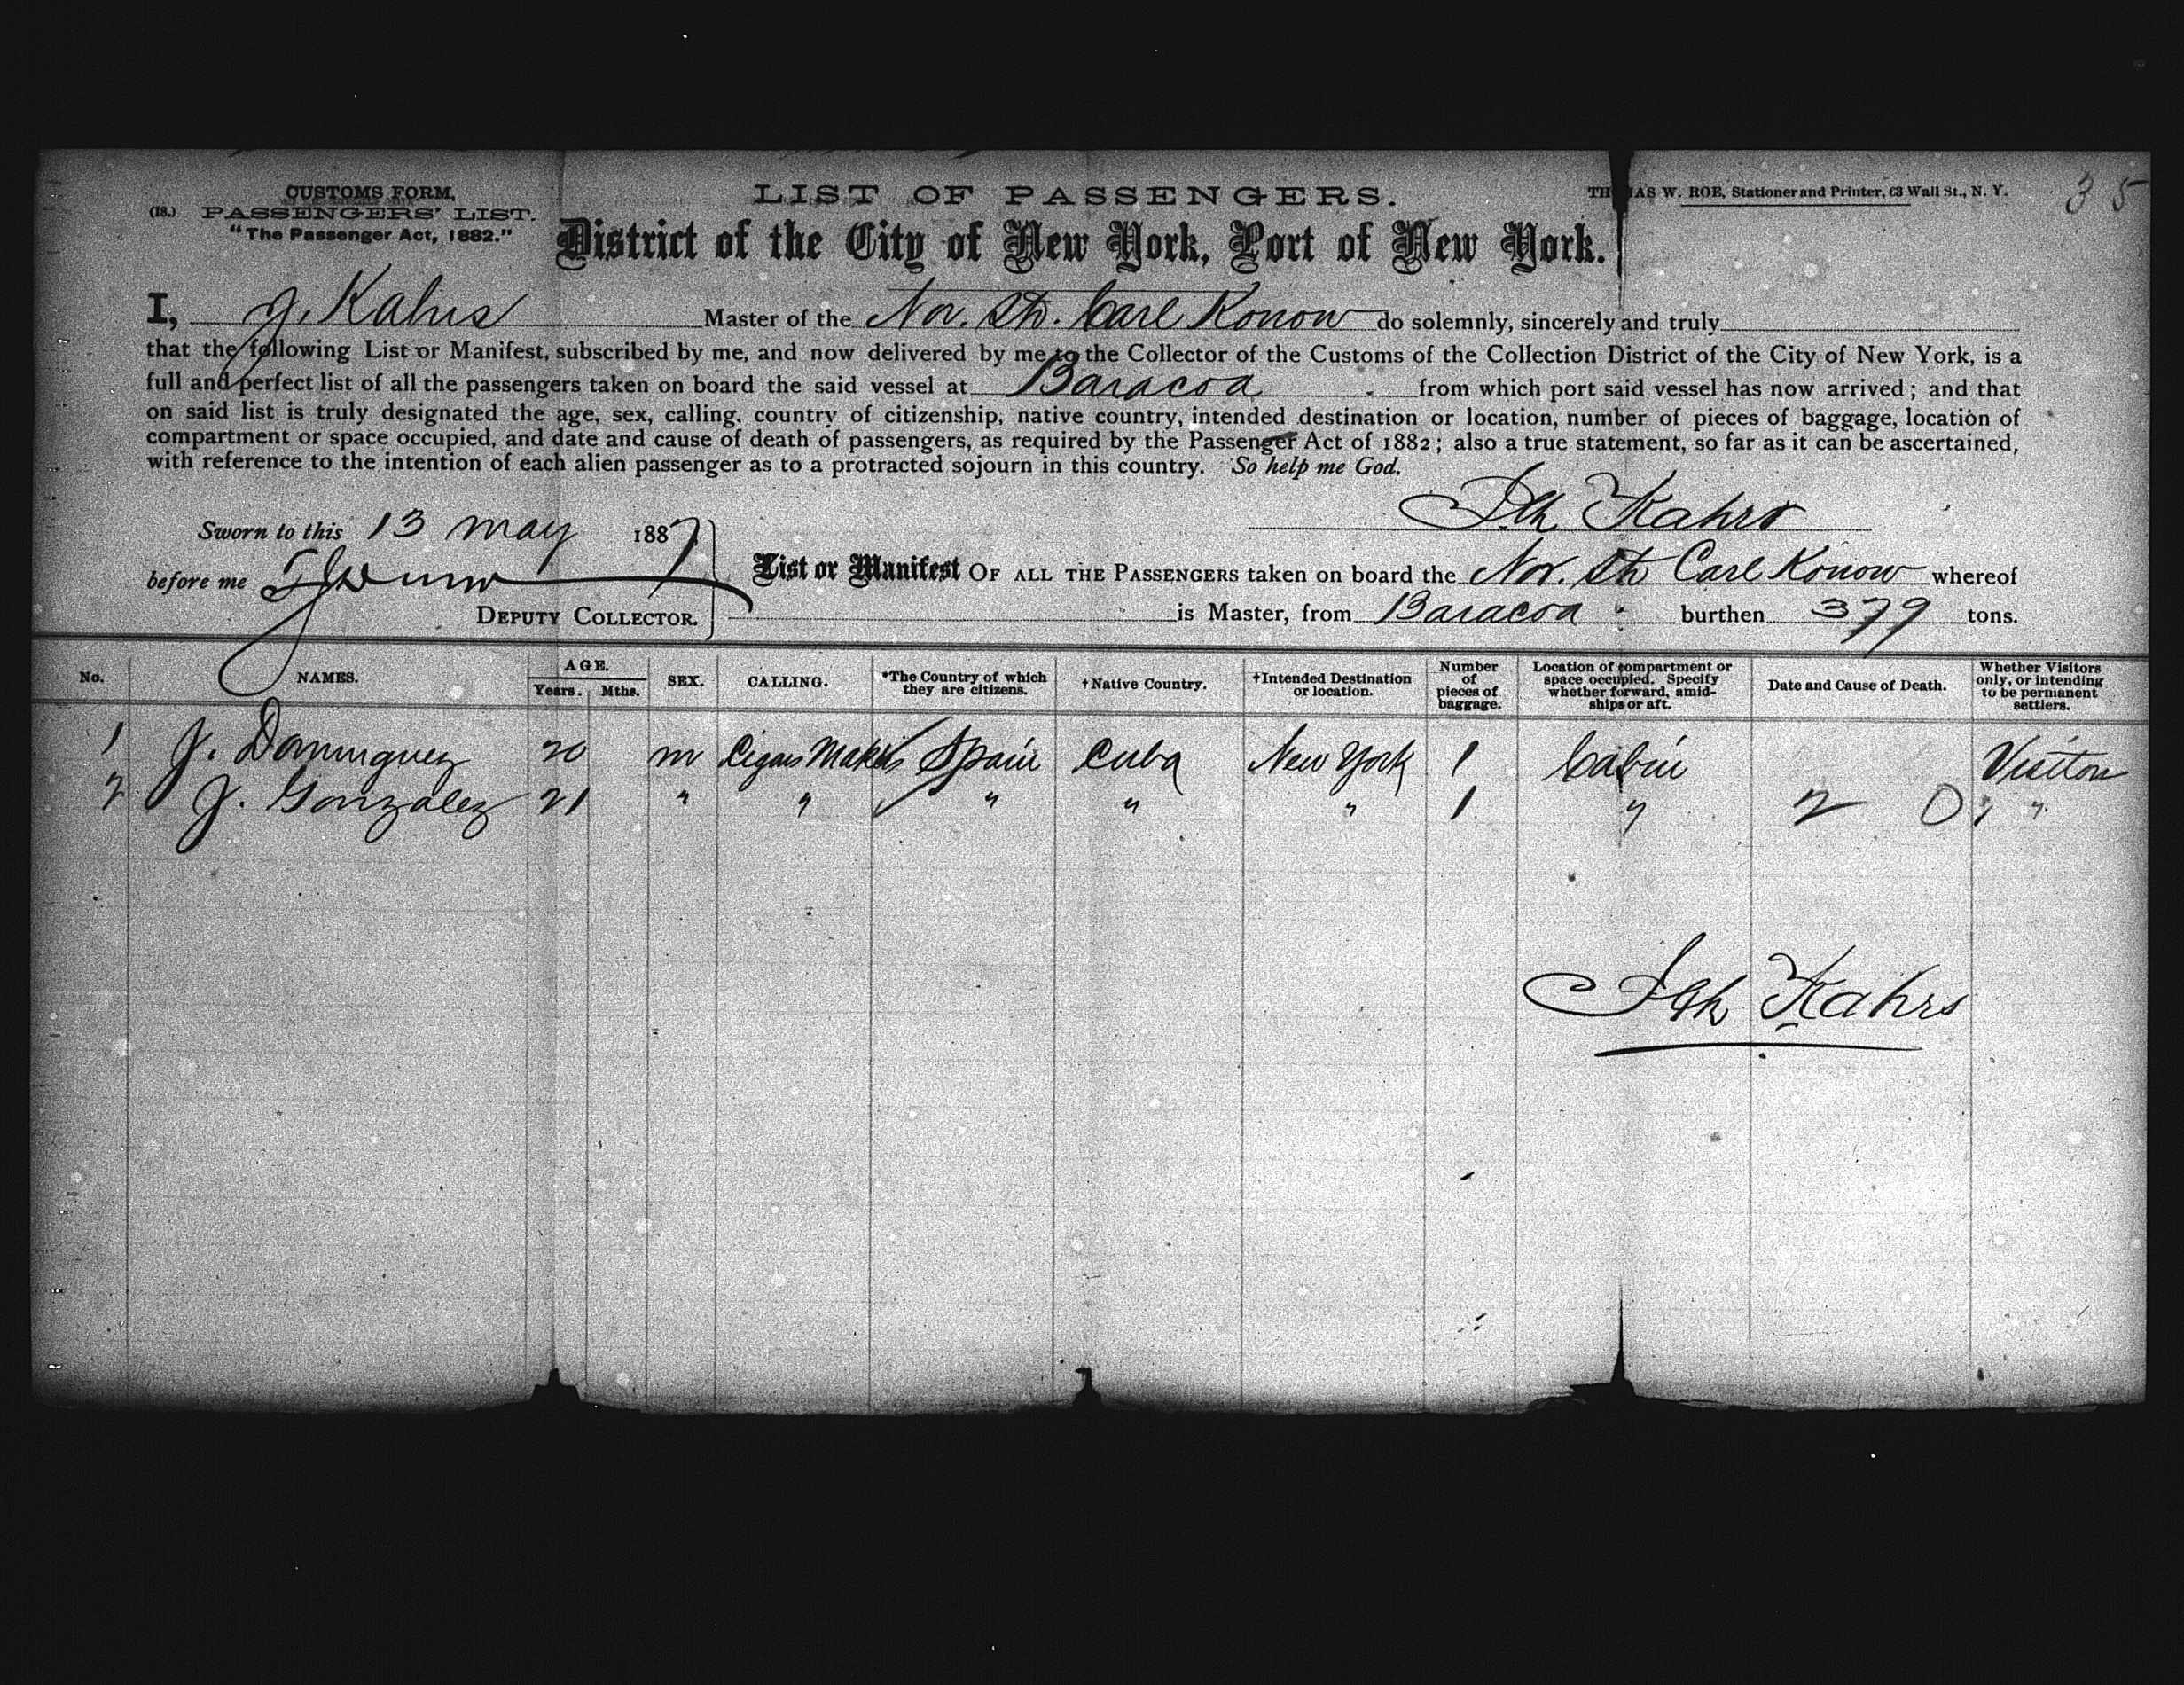 35
CUSTOMS FORM.
(18.) PASSENGERS' LIST.
"The Passenger Act, 1882."
LIST OF PASSENGERS.
TH AS W. ROE, Stationer and Printer, 63 Wall St., N. Y.
District of the City of New York, Port of New York.
I, J. Kahrs Master of the Nor. Str. Carl Konow do solemnly, sincerely and truly
that the following List or Manifest, subscribed by me, and now delivered by me to the Collector of the Customs of the Collection District of the City of New York, is a
full and perfect list of all the passengers taken on board the said vessel at Baracoa from which port said vessel has now arrived; and that
on said list is truly designated the age, sex, calling, country of citizenship, native country, intended destination or location, number of pieces of baggage, location of
compartment or space occupied, and date and cause of death of passengers, as required by the Passenger Act of 1882; also a true statement, so far as it can be ascertained,
with reference to the intention of each alien passenger as to a protracted sojourn in this country. So help me God.
Kahrs
Sworn to this 13 may 1887
before me
DEPUTY COLLECTOR.
List or Manifest OF ALL THE PASSENGERS taken on board the Nor. Str Carl Konow whereof
is Master, from Baracoa burthen 379 tons.
No. NAMES. AGE. Years. Mths. SEX. CALLING. *The Country of which they are citizens. †Native Country. †Intended Destination or location. Number of pieces of baggage. Location of compartment or space occupied. Specify whether forward, amidships or aft. Date and Cause of Death. Whether Visitors only, or intending to be permanent settlers.
1 J. Dominguez 20 m Cigar Maker Spain Cuba New York 1 Cabin Visitor
2 J. Gonzalez 21 " " " " " 1 " 2 0 "
Kahrs